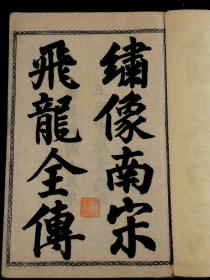 繡像南宋
飛龍全傳